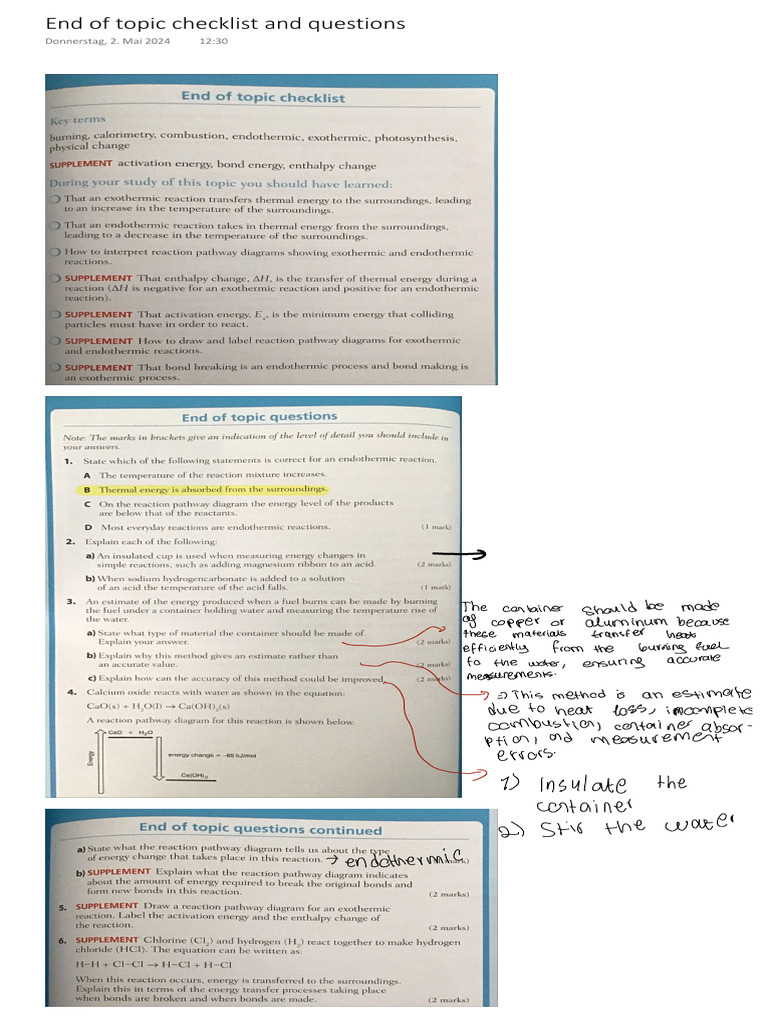 End of topic checklist and questions
Donnerstag, 2. Mai 2024 12:30
End of topic checklist
Key terms
burning, calorimetry, combustion, endothermic, exothermic, photosynthesis,
physical change
SUPPLEMENT activation energy, bond energy, enthalpy change
During your study of this topic you should have learned:
That an exothermic reaction transfers thermal energy to the surroundings, leading
to an increase in the temperature of the surroundings.
That an endothermic reaction takes in thermal energy from the surroundings,
leading to a decrease in the temperature of the surroundings.
How to interpret reaction pathway diagrams showing exothermic and endothermic
reactions.
SUPPLEMENT That enthalpy change, ΔH, is the transfer of thermal energy during a
reaction (ΔH is negative for an exothermic reaction and positive for an endothermic
reaction).
SUPPLEMENT That activation energy, Eₐ, is the minimum energy that colliding
particles must have in order to react.
SUPPLEMENT How to draw and label reaction pathway diagrams for exothermic
and endothermic reactions.
SUPPLEMENT That bond breaking is an endothermic process and bond making is
an exothermic process.
End of topic questions
Note: The marks in brackets give an indication of the level of detail you should include in
your answers.
1. State which of the following statements is correct for an endothermic reaction.
A The temperature of the reaction mixture increases.
B Thermal energy is absorbed from the surroundings.
C On the reaction pathway diagram the energy level of the products
are below that of the reactants.
D Most everyday reactions are endothermic reactions. (1 mark)
2. Explain each of the following:
a) An insulated cup is used when measuring energy changes in
simple reactions, such as adding magnesium ribbon to an acid. (2 marks)
b) When sodium hydrogencarbonate is added to a solution
of an acid the temperature of the acid falls. (1 mark)
3. An estimate of the energy produced when a fuel burns can be made by burning
the fuel under a container holding water and measuring the temperature rise of
the water.
a) State what type of material the container should be made of.
Explain your answer. (2 marks)
b) Explain why this method gives an estimate rather than
an accurate value. (2 marks)
c) Explain how can the accuracy of this method could be improved. (2 marks)
4. Calcium oxide reacts with water as shown in the equation:
CaO(s) + H₂O(l) → Ca(OH)₂(s)
A reaction pathway diagram for this reaction is shown below.
CaO + H₂O
Energy
energy change = –65 kJ/mol
Ca(OH)₂
The container should be made
of copper or aluminum because
these materials transfer heat
efficiently from the burning fuel
to the water, ensuring accurate
measurements.
=> This method is an estimate
due to heat loss, incomplete
combustion, container absor-
ption, and measurement
errors.
1) Insulate the
container
2) Stir the water
End of topic questions continued
a) State what the reaction pathway diagram tells us about the type
of energy change that takes place in this reaction. → endothermic
b) SUPPLEMENT Explain what the reaction pathway diagram indicates
about the amount of energy required to break the original bonds and
form new bonds in this reaction. (2 marks)
5. SUPPLEMENT Draw a reaction pathway diagram for an exothermic
reaction. Label the activation energy and the enthalpy change of
the reaction. (2 marks)
6. SUPPLEMENT Chlorine (Cl₂) and hydrogen (H₂) react together to make hydrogen
chloride (HCl). The equation can be written as:
H–H + Cl–Cl → H–Cl + H–Cl
When this reaction occurs, energy is transferred to the surroundings.
Explain this in terms of the energy transfer processes taking place
when bonds are broken and when bonds are made. (2 marks)